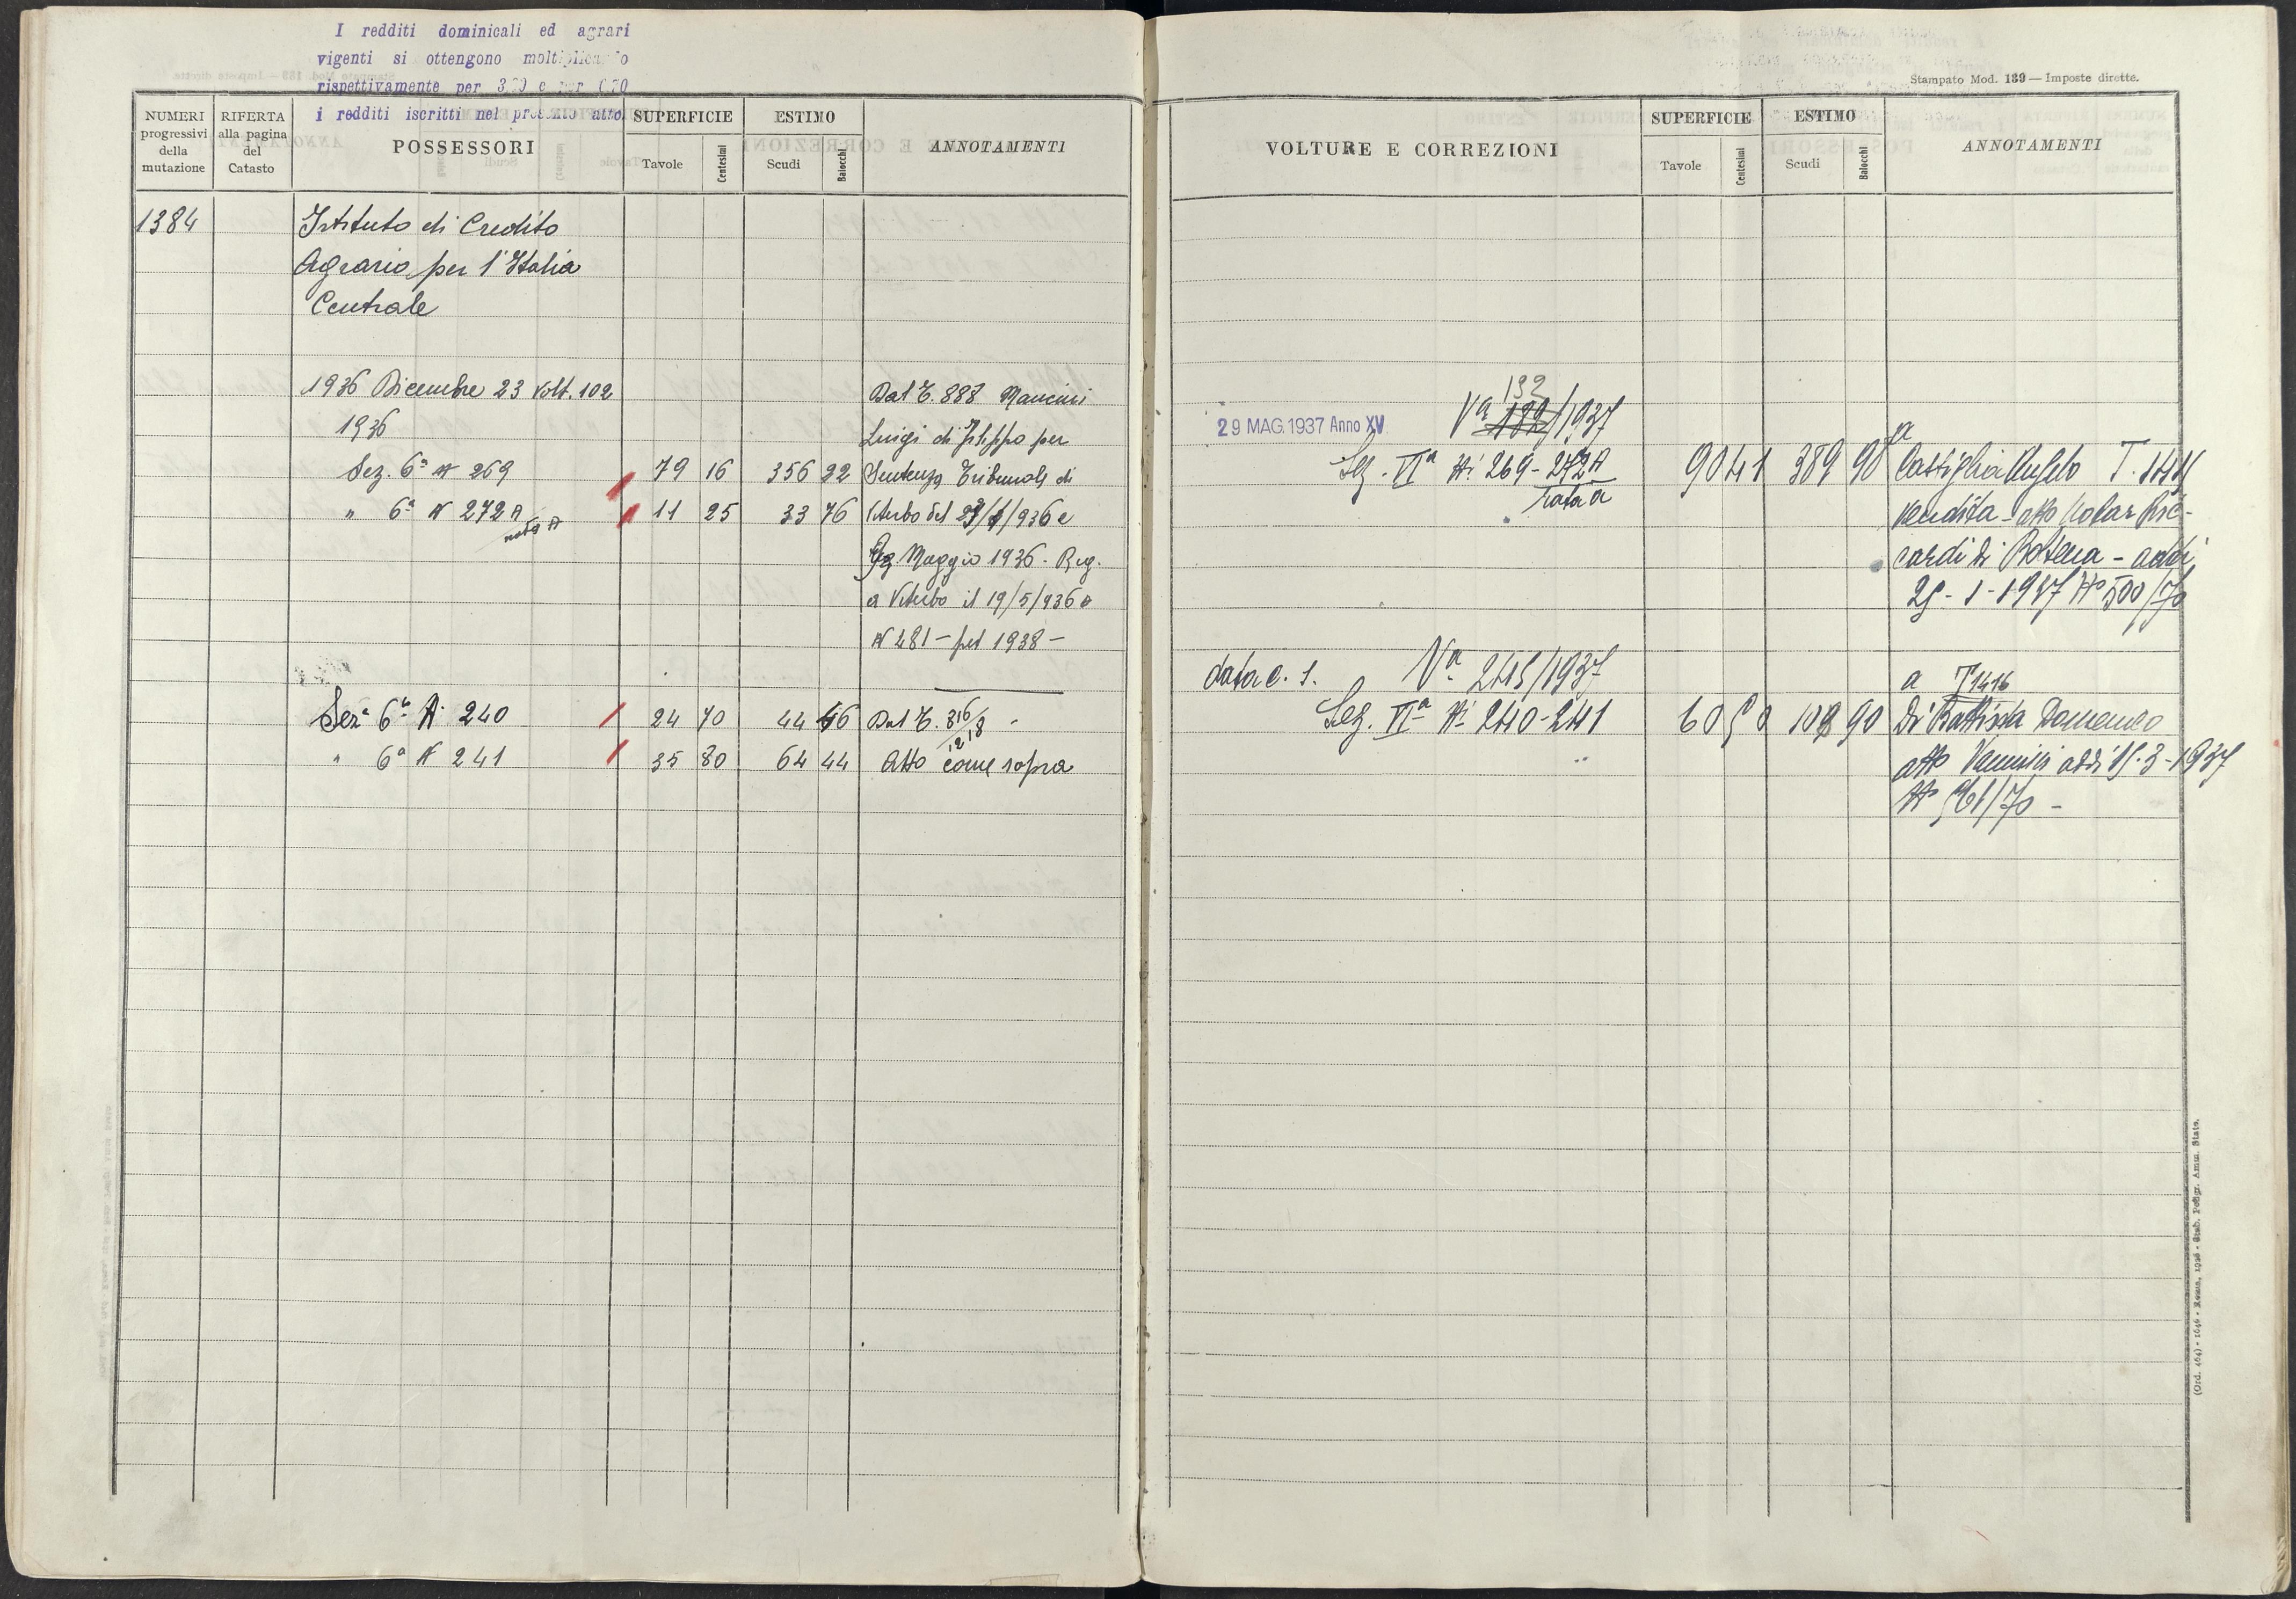 I redditi dominicali ed agrari
vigenti si ottengono moltiplicando
rispettivamente per 3,20 e per 0,70
i redditi iscritti nel presente atto.
NUMERI progressivi della mutazione
RIFERTA alla pagina del Catasto
POSSESSORI
SUPERFICIE
Tavole
Centesimi
ESTIMO
Scudi
Baiocchi
ANNOTAMENTI
1384
Istituto di Credito
Agrario per l'Italia
Centrale
1936 Dicembre 23 Volt. 102
Dal T. 888 Mancini
1936
Luigi di Filippo per
Sez. 6ª N 269 79 16 356 22 Sentenza Tribunale di
" 6ª N 272 A 11 25 33 76 Viterbo del /936 e
rata A
Maggio 1936. Reg.
a Viterbo il 19/5/936 a
N 281 - 1938 -
Sezª 6ª N 240 24 70 44 46 Dal T. 816/1218
" 6ª N 241 35 80 64 44 Atto come sopra
Stampato Mod. 139 — Imposte dirette.
VOLTURE E CORREZIONI
SUPERFICIE
Tavole
Centesimi
ESTIMO
Scudi
Baiocchi
ANNOTAMENTI
132
29 MAG. 1937 Anno XV Vª 182/1937
a
Sez. VIª Ni 269-272A 90 41 389 98 Castiglia T.
rata a
vendita - atto Notar Ric-
cardi di Bolsena - addì
25-1-1937 N° 500/70
data c. s. Vª 245/1937
a T 1416
Sez. VIª Ni 240-241 60 50 108 90 Di Battista Domenico
atto Vannisi addì 15-3-1937
N° 561/70 -
(Ord. 464) - 1646 - Roma, 1936 - Stab. Poligr. Amm. Stato.